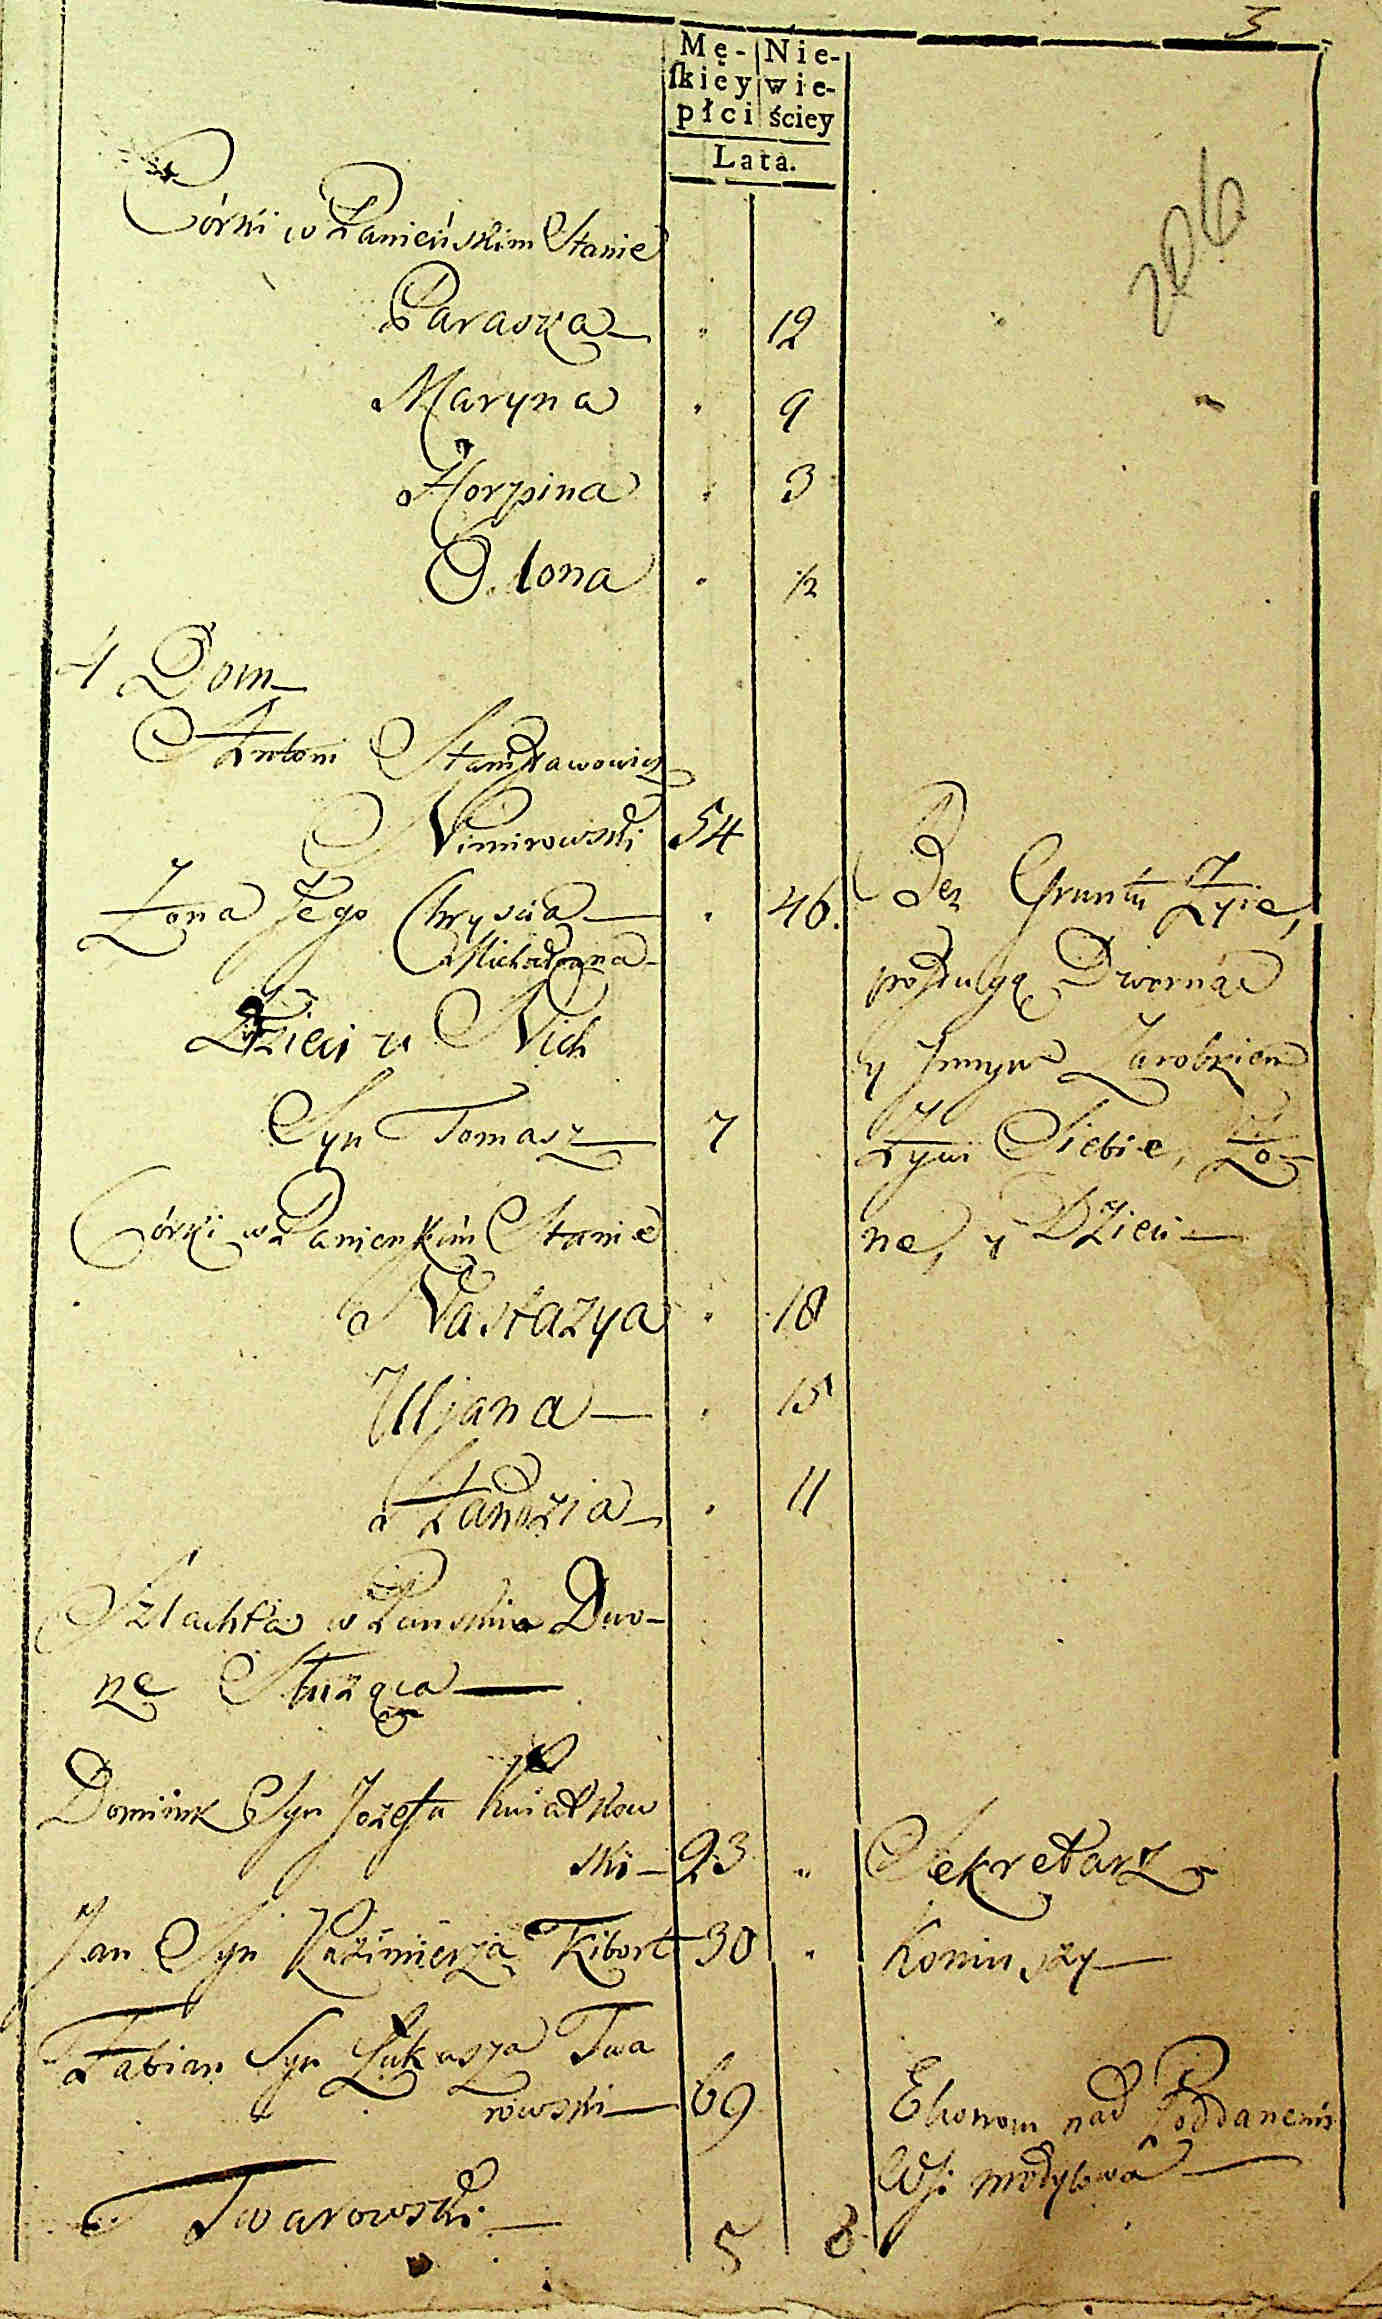 3
Mę- Nie-
ſkiey wie-
płci ściey
Lata.
206
Córki w Panieńskim Stanie
Paraska 12
Maryna 9
Horpina 3
Olona 1/2
4 Dom
Antoni Stanisławowicz
Nimirowski 54
Żona Jego Chrysia 46.
Michałowna
Bez Gruntu Żyie,
posługą Dworną
Dzieci u Nich
y Innym Zarobkiem
Syn Tomasz 7
Żywi Siebie, Żo-
Córki w Panienskim Stanie
ne, y Dzieci
Nastazya 18
Uljana 15
Handzia 11
Szlachta w Panskim Dwo-
rze Służąca
Dominik Syn Jozefa Kwiatkow
ski 23 Sekretarz
Jan Syn Kazimierza Kibort 30 Koniuszy
Fabian Syn Łukasza Twa
rowski 69 Ekonom nad Poddanemi
Wsi
Twarowski
5 8